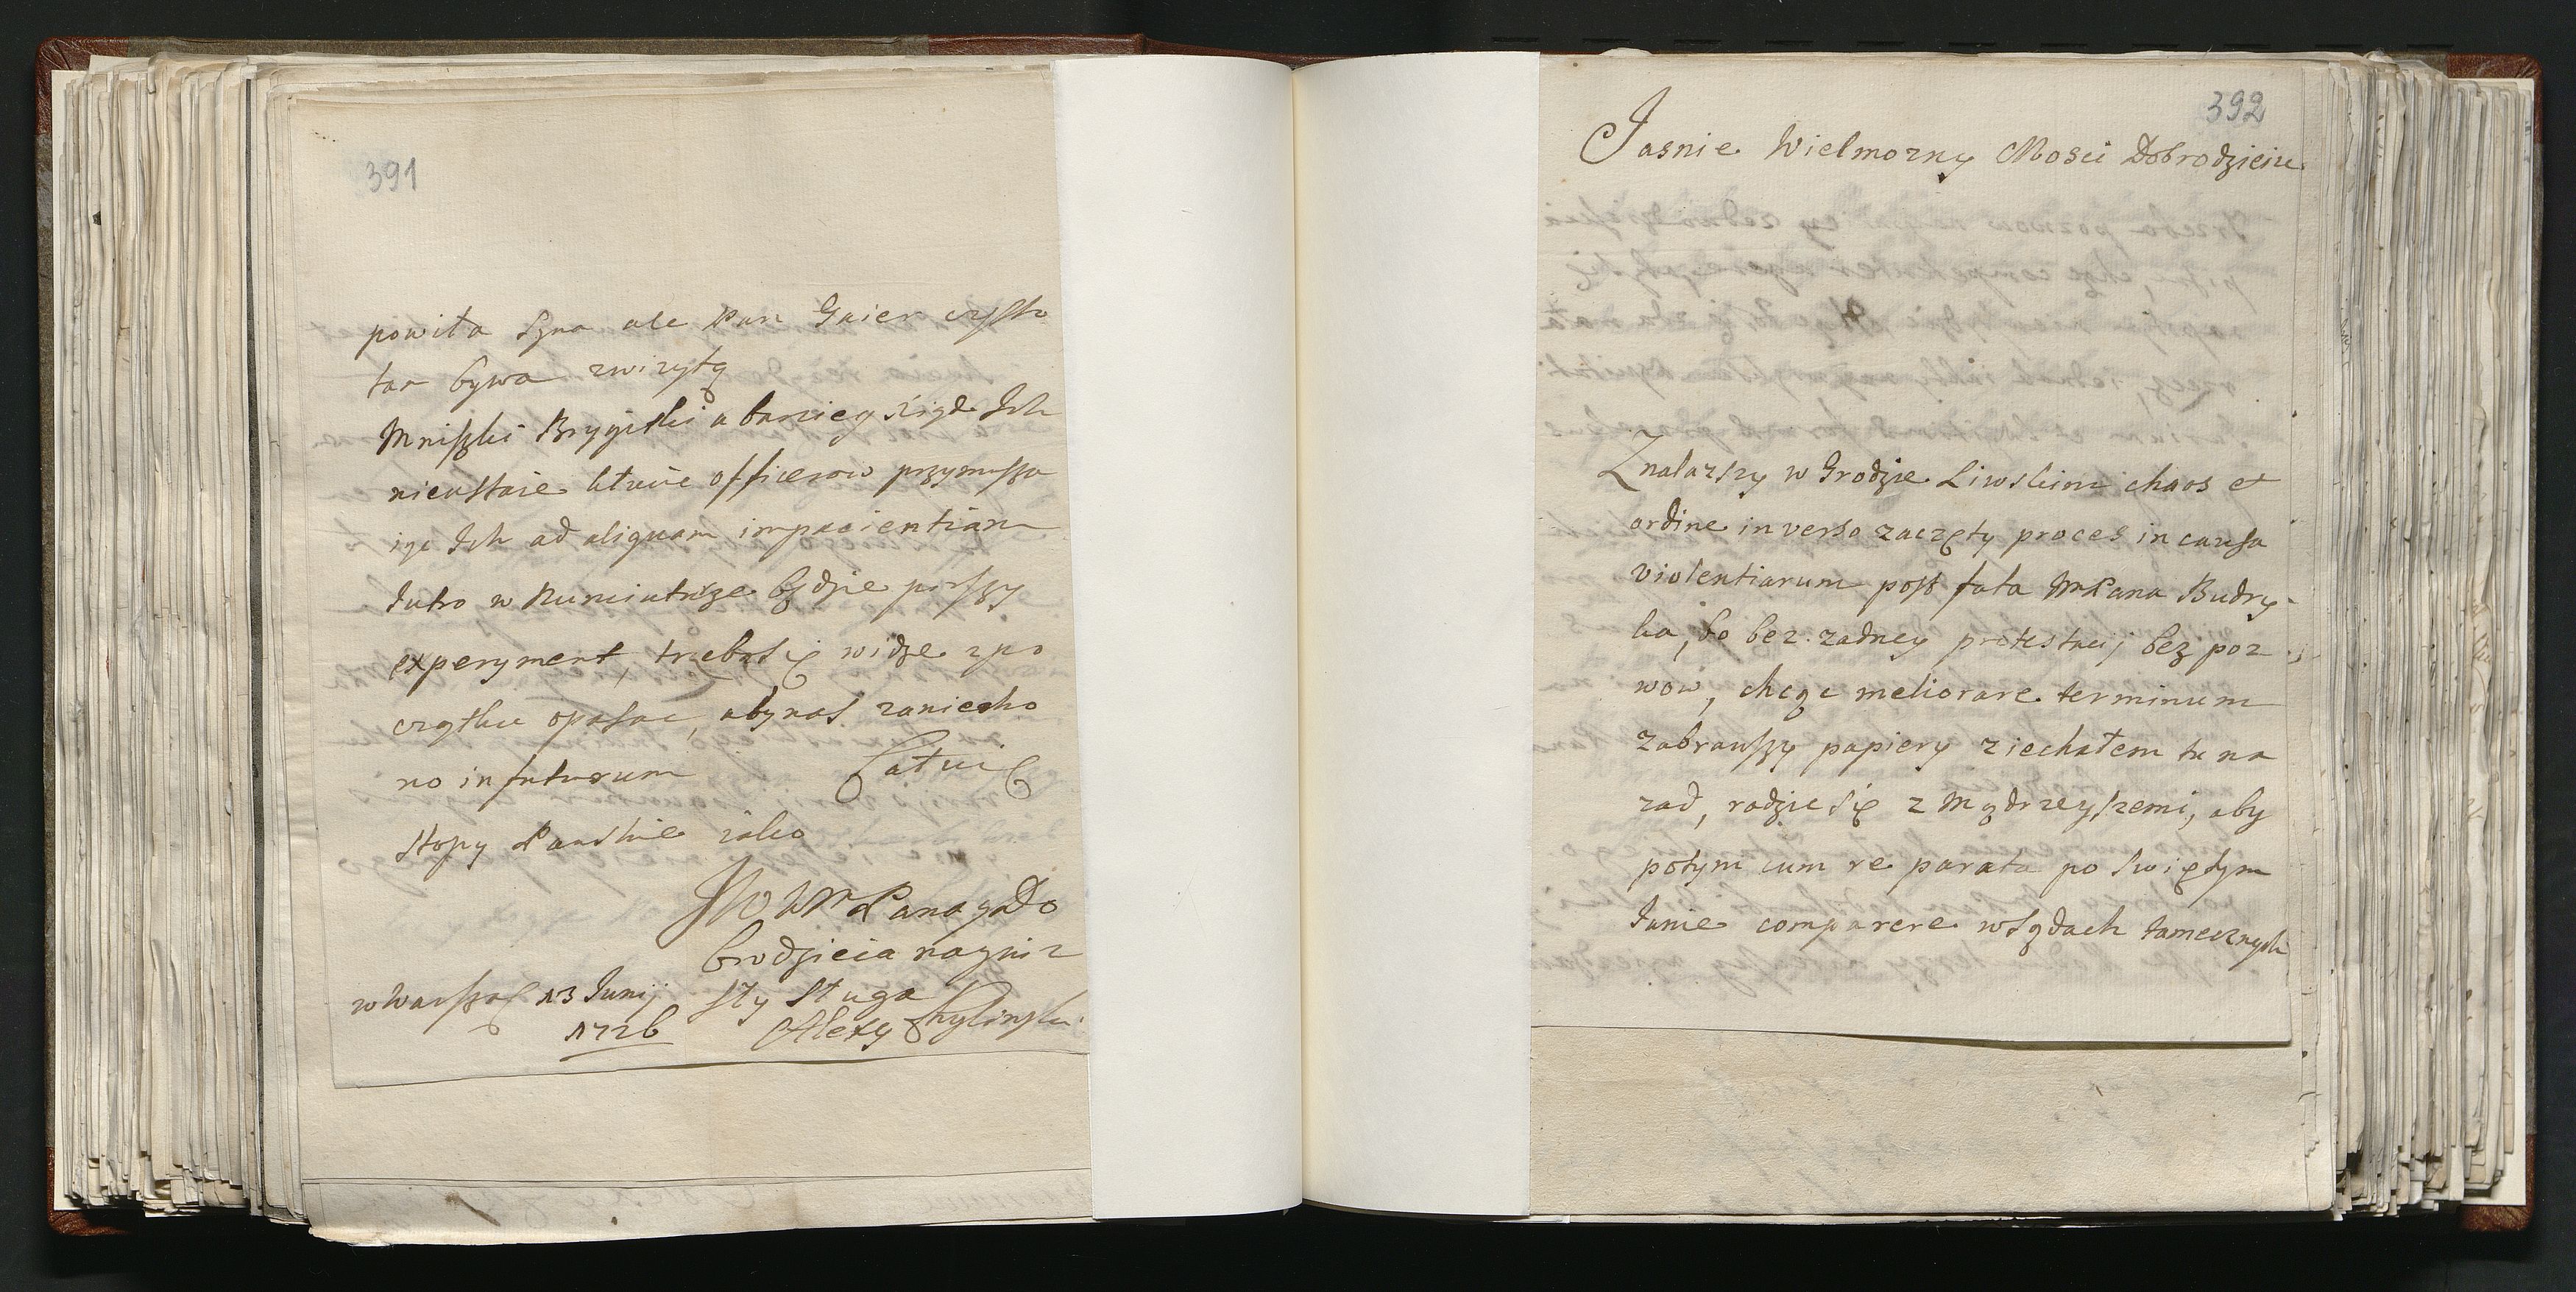 391
powiła Syna ale Pan Gaier czysto
tar bywa zwizytą
Mniszki Brygitki a barziey Xiądz Ich
nieustaie kłuie officerow przymusza
iąc Ich ad aliquam impacientiam
Jutro w Nunciaturze będzie pirszy
experyment, trzeba się widze z po
czątku opasac, aby nas zaniecho
no in futurum Całuię
Stopy Panskie iako
JWWM Pana y Do
brodzieia nayniz
w Warszae 13 Junij szy Sługa
1726 Alexy
392
Jasnie Wielmozny Mosci Dobrodzieiu
Znalazszy w Grodzie Liwskim chaos et
ordine inverso zaczęty proces in causa
violentiarum post fata MPana Budry-
ka, bo bez zadney protestacij bez poz
wow, chcąc meliorare terminum
zabrauszy papiery ziechałem tu na
rad, radzic się z Mądrzeyszemi, aby
potym cum re parata po Swiętym
Janie comparere w Sądach tamecznych